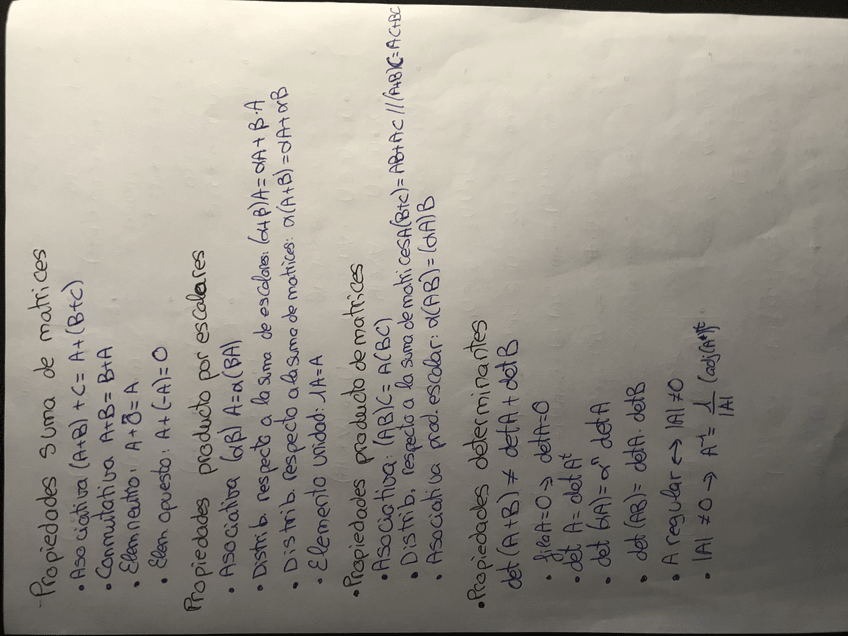 - Propiedades suma de matrices
• Asociativa (A+B)+C = A+(B+C)
• Conmutativa A+B = B+A
• Elem neutro: A+0 = A
• Elem. opuesto: A+(-A)=0
Propiedades producto por escalares
• Asociativa (αβ)A=α(βA)
• Distrib. respecto a la suma de escalares: (α+β)A=αA+β·A
• Distrib. respecto a la suma de matrices: α(A+B)=αA+αB
• Elemento unidad: 1A=A
• Propiedades producto de matrices
• Asociativa: (AB)C = A(BC)
• Distrib. respecto a la suma de matrices A(B+C)=AB+AC//(A+B)C=AC+BC
• Asociativa prod. escalar: α(AB)=(αA)B
• Propiedades determinantes
det(A+B) ≠ detA+detB
• fila A=0 ⇒ detA=0
• det A = det Aᵗ
• det (αA)=αⁿ detA
• det (AB) = detA · detB
• A regular ↔ |A|≠0
• |A|≠0 → A⁻¹ = 1/|A| (adj(A))ᵗ